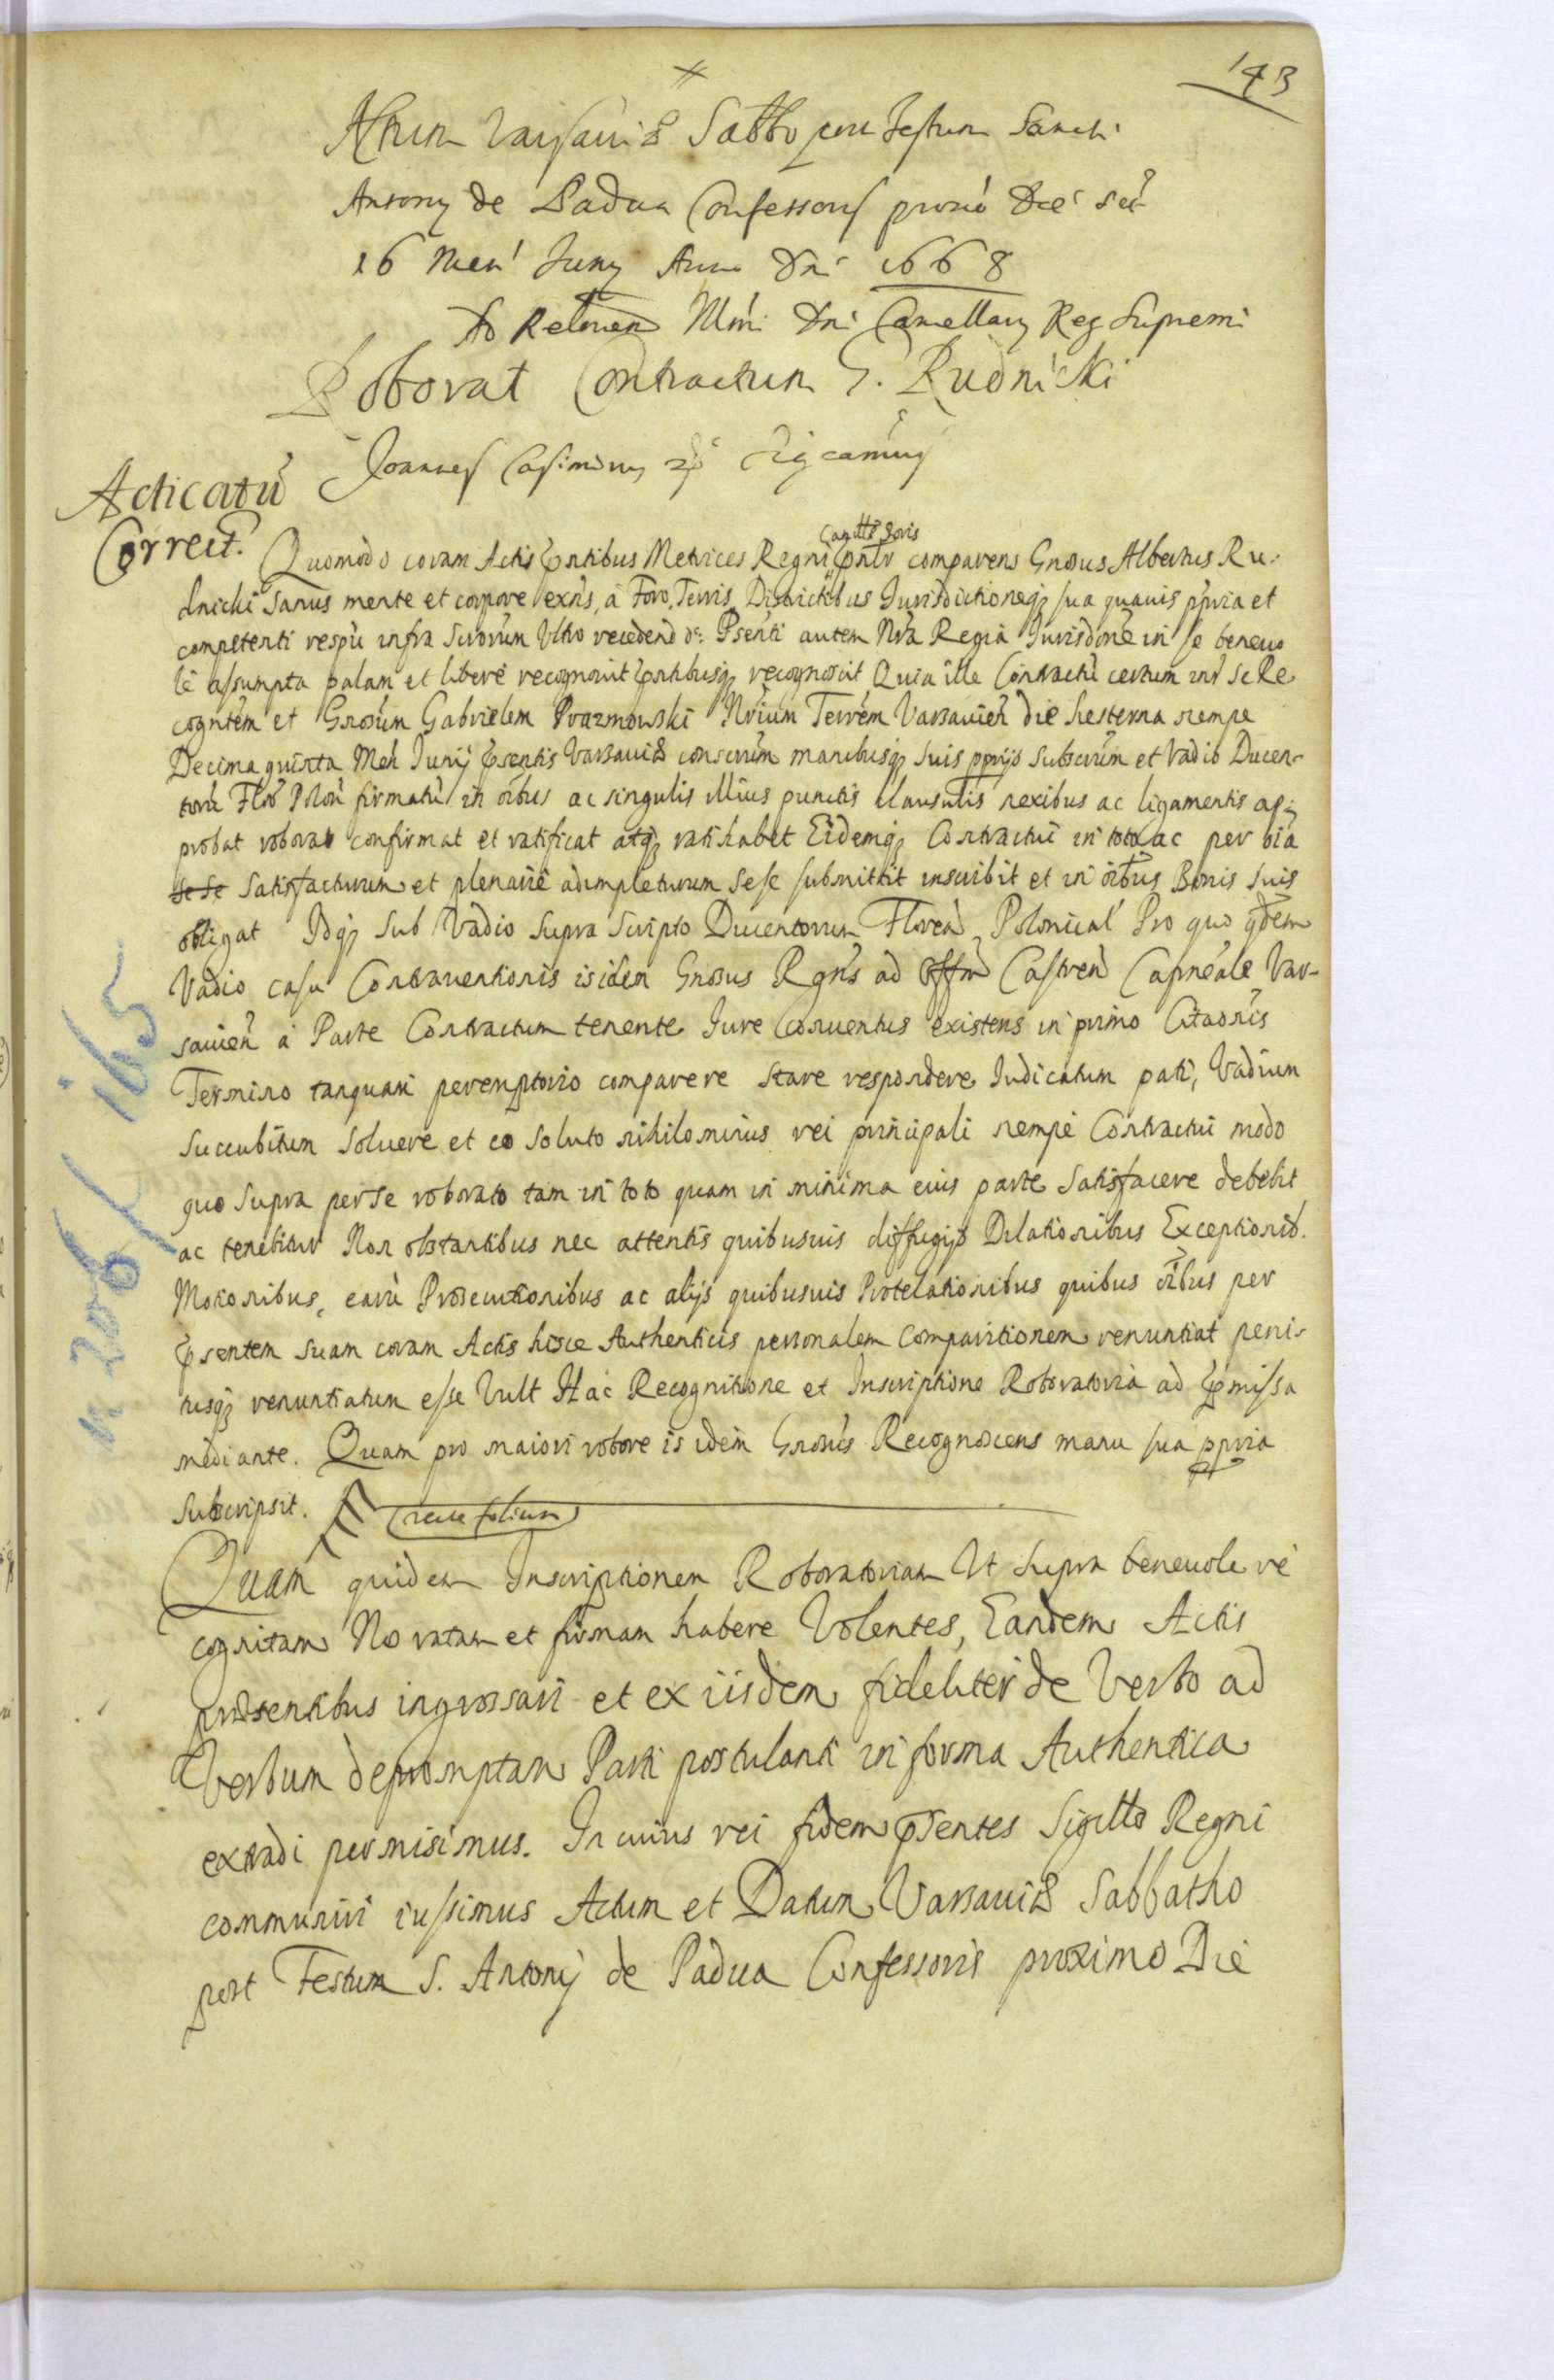 143
Actum Varsaviæ Sabbo post Festum Sancti
Antony de Padua Confessoris proxio Die scᵃ
16 Men Juny Anno Dni 1668
Ad Relonem Illmi Dni Cancellary Reg Supremi
Roborat Contractum G. Rudnicki
Joannes Casimirus
Acticatū
Correct.
Cancelliᵉ Poris
Quomodo coram Actis pntibus Metrices Regni pnlr comparens Gnosus Albertus Ru-
dnicki Sanus mente et corpore exns, à Foro, Terris Districtibus Jurisdictioneq sua quavis ppria et
competenti respu infra Scrorum Ultro recedend &c: Psenti autem Nra Regia Jurisdone in se benevo
le assumpta palam et libere recognovit pntibusq recognoscit Quia ille Contractū certum intr se Re
cogntem et Gnosum Gabrielem Prazmowski Nrium Terrem Varsavien die hesterna nempe
Decima quinta Men Junij psentis Varsaviæ conscrum manibusq suis pprijs subscrum et Vadio Ducen-
torū Flor Polon firmatū in oibus ac singulis illius punctis clausulis nexibus ac ligamentis ap-
probat roborat confirmat et ratificat atq ratihabet Eidemq Contractui in toto ac per oia
se se satisfacturum et plenarie adimpleturum sese submittit inscribit et in oibus Bonis suis
obligat Idq sub Vadio supra scripto Ducentorum Floren Polonical Pro quo qdem
Vadio casu Contraventionis is iden Gnosus Rgns ad Offm Castren Capneale Var-
savien à Parte Contractum tenente Jure Conventus existens in primo Citaonis
Termino tanquam peremptorio comparere stare respondere Judicatum pati, Vadium
succubitum solvere et eo soluto nihilominus rei principali nempe Contractui modo
quo supra per se roborato tam in toto quam in minima eius parte satisfacere debebit
ac tenebitur Non obstantibus nec attentis quibusuis diffugijs Dilationibus Exceptionib.
Motionibus, earū Prosecutionibus ac alijs quibusuis Protelationibus quibus oibus per
psentem suam coram Actis hisce Authenticis personalem comparitionem renuntiat peni-
tusq renuntiatum esse Vult Hac Recognitione et Inscriptione Roboratoria ad pmissa
mediante. Quam pro maiori robore is idem Gnosus Recognoscens manu sua ppria
subscripsit.
Quam quidem Inscriptionem Roboratoriam Ut supra benevole re
cognitam No ratam et firmam habere Volentes, Eandem Actis
præsentibus ingrossari et ex iisdem fideliter de Verbo ad
Verbum depromptam Parti postulanti in forma Authentica
extradi permisimus. In cuius rei fidem psentes Sigillo Regni
communiri iussimus Actum et Datum Varsaviæ Sabbatho
post Festum S. Antonij de Padua Confessoris proximo Die